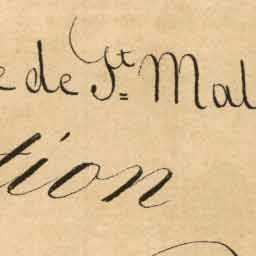 e de St Mal
tion